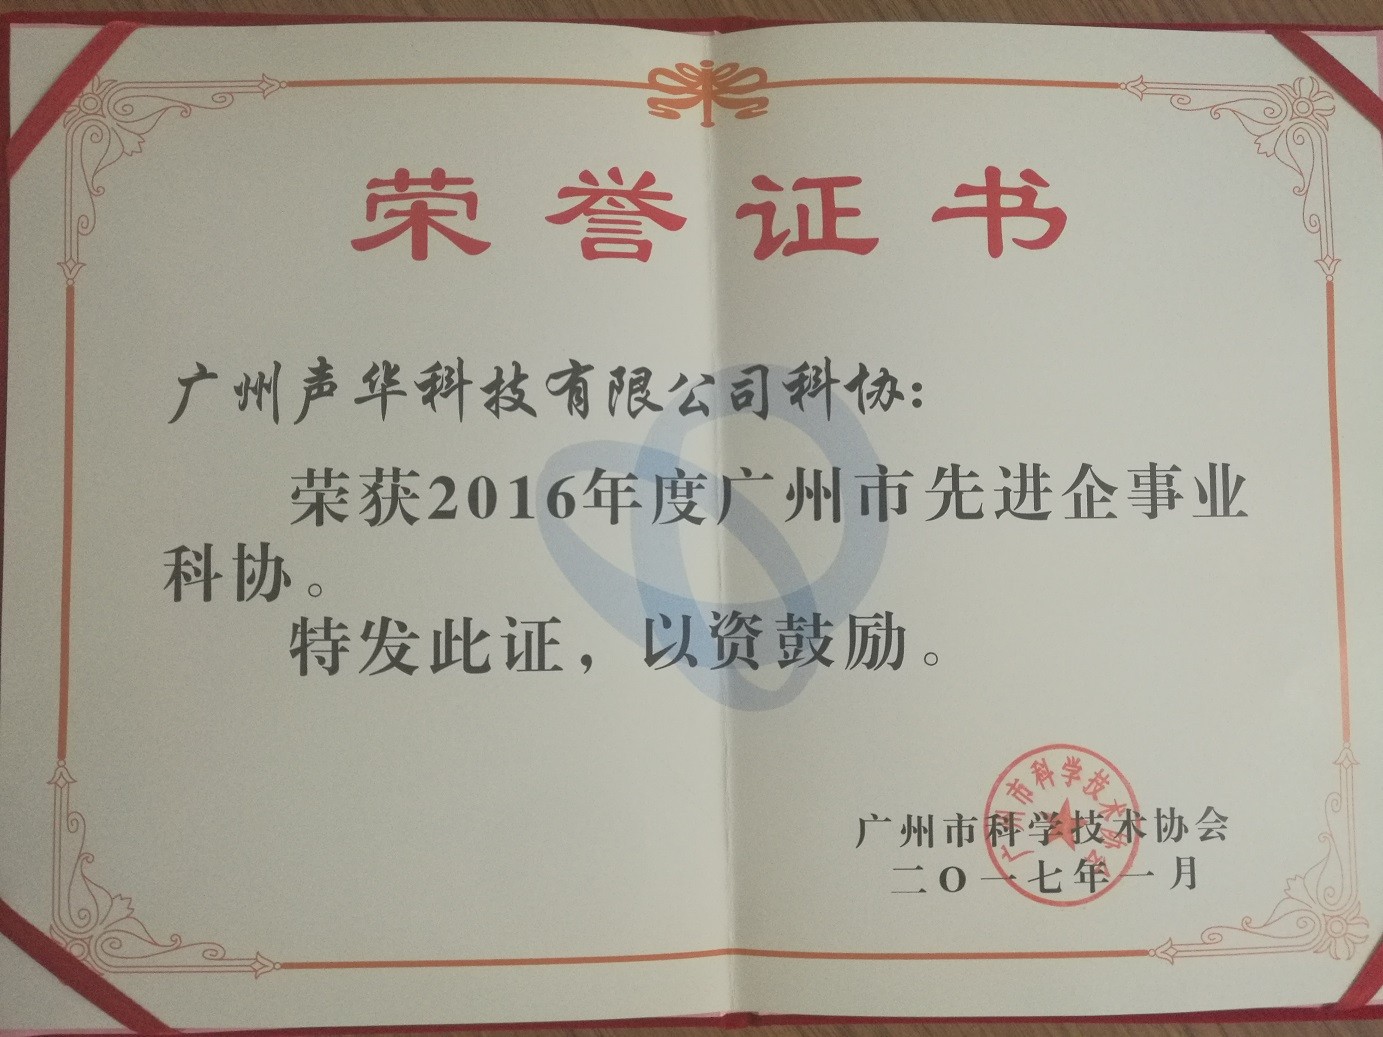 荣誉证书
广州声华科技有限公司科协:
荣获2016年度广州市先进企事业
科协。
特发此证，以资鼓励。
广州市科学技术协会
二〇一七年一月
广州市科学技术协会